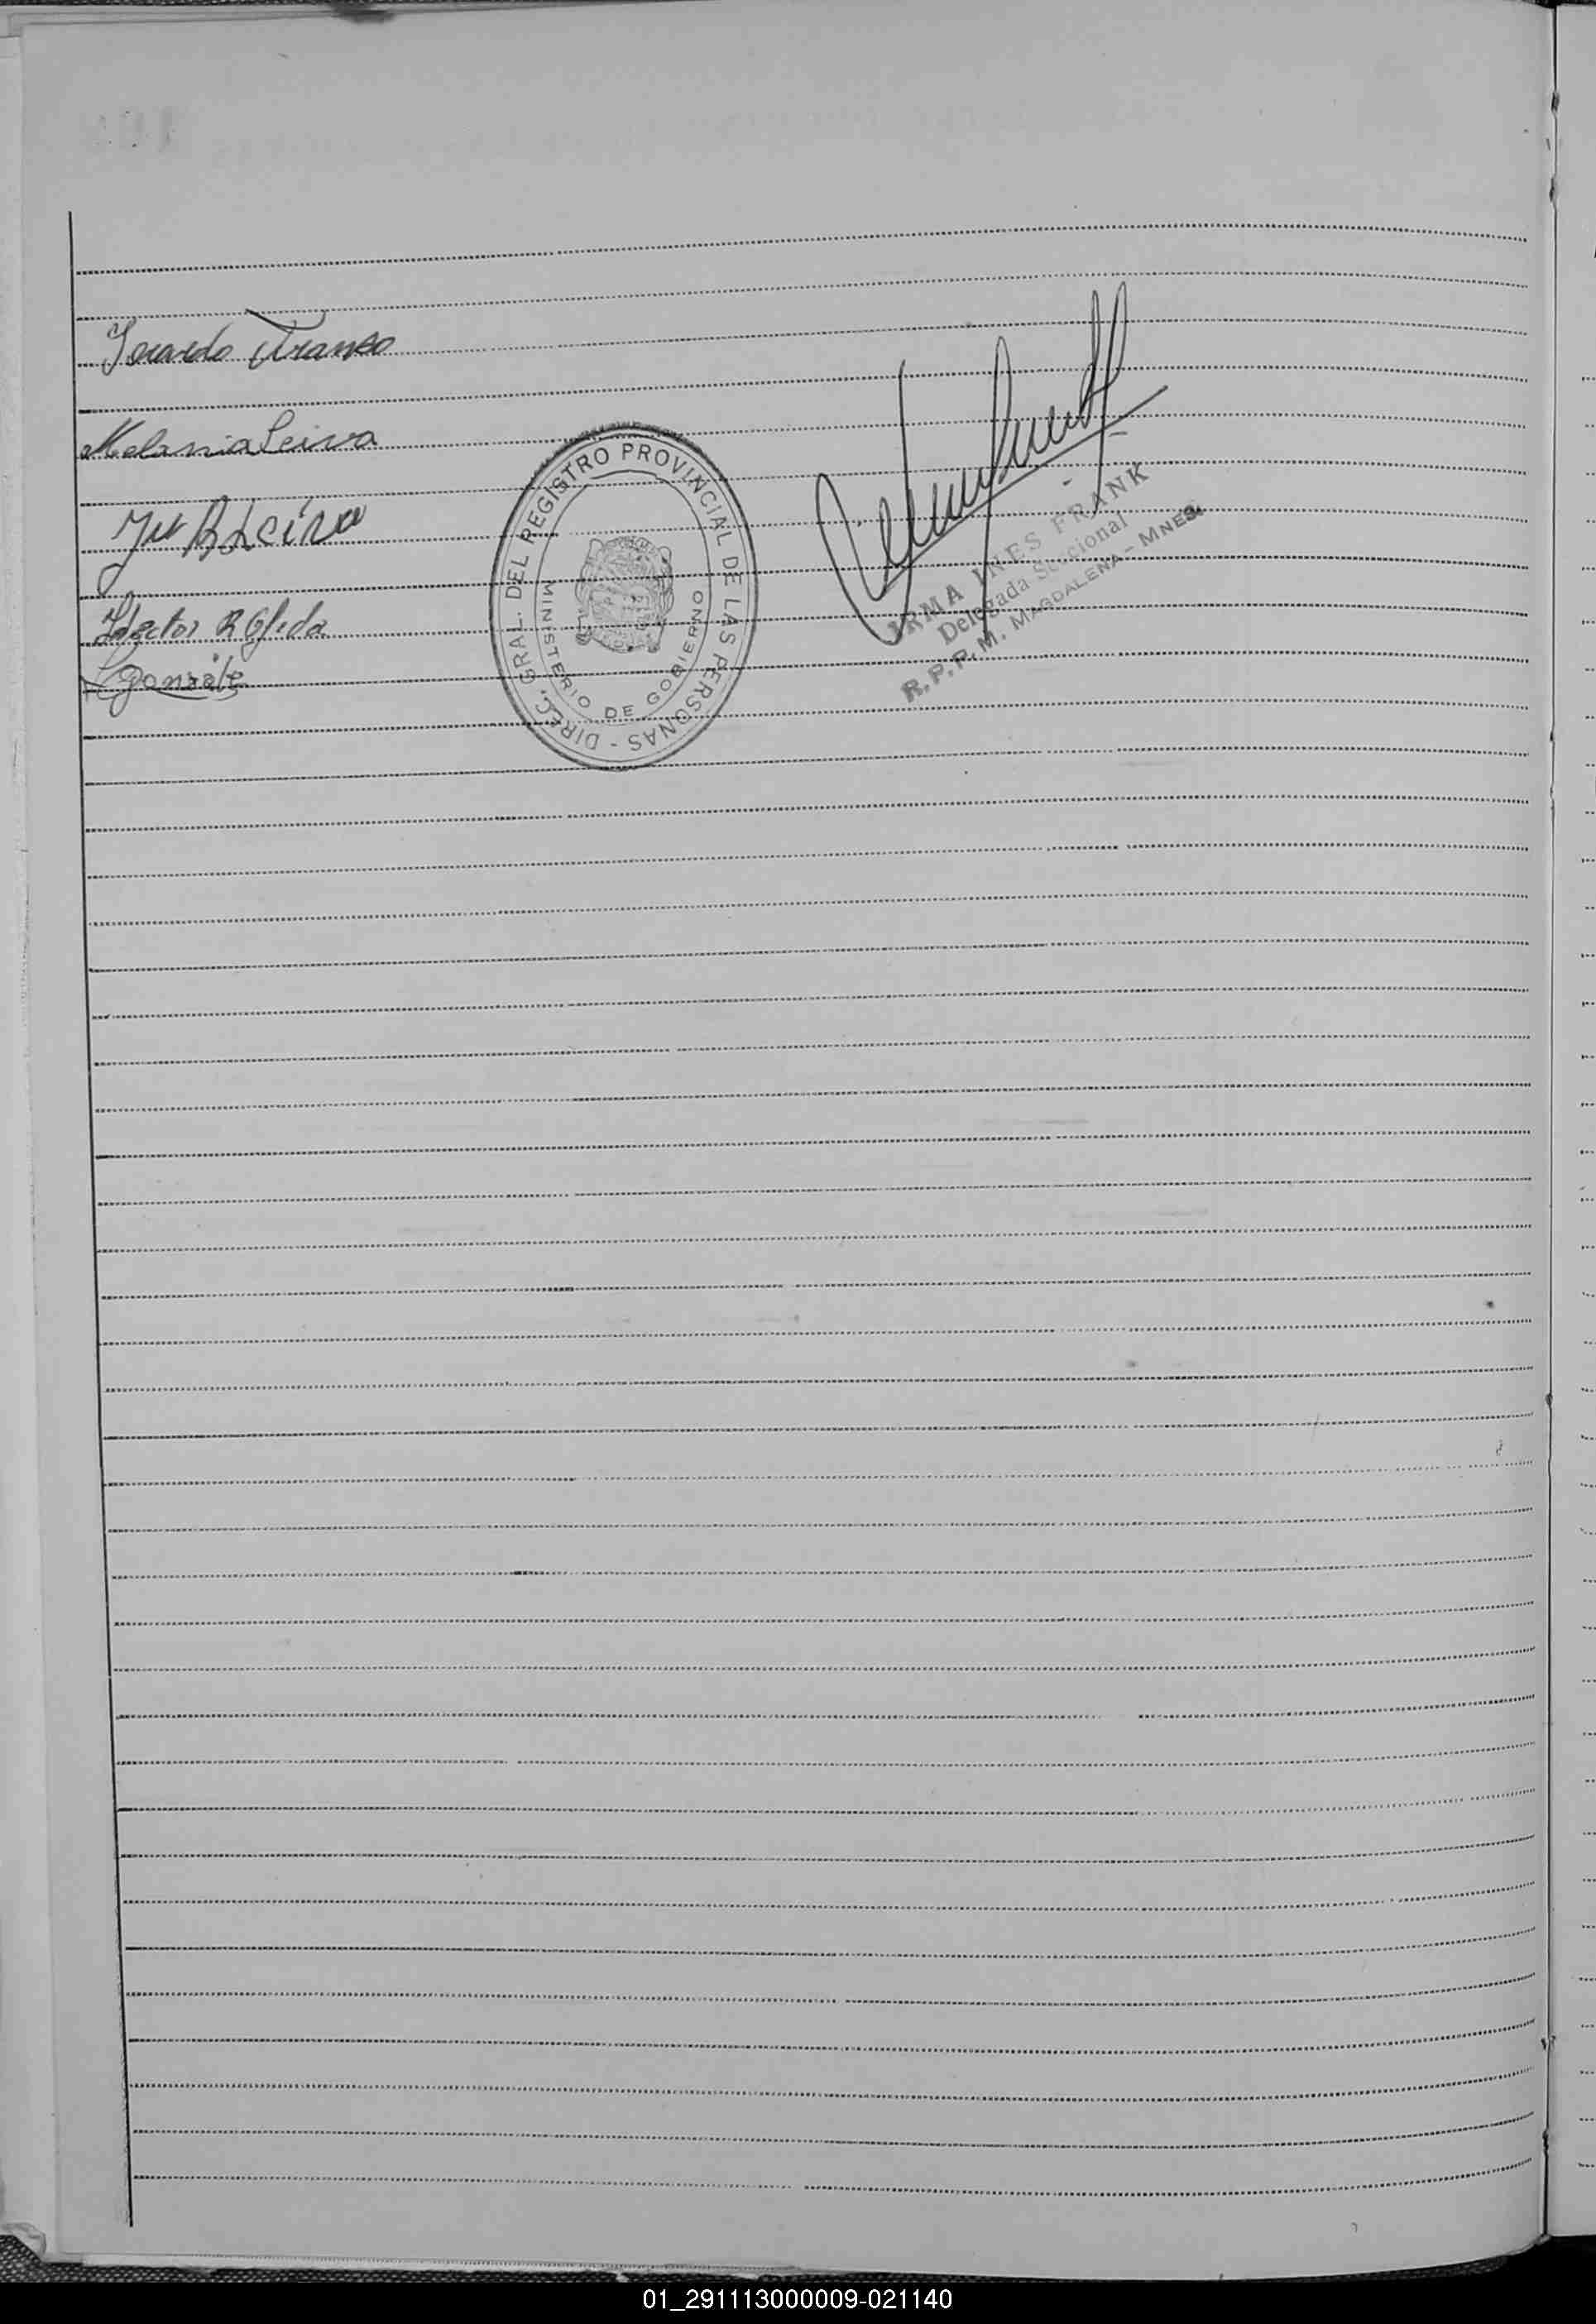 Franco
Melania Leiva
Leiva
Hector R Ojeda
Gonzalez
DIREC. GRAL. DEL REGISTRO PROVINCIAL DE LAS PERSONAS -
MINISTERIO DE GOBIERNO
IRMA INES FRANK
Delegada Seccional
R.P.P.M. MAGDALENA - MNES.
01_291113000009-021140